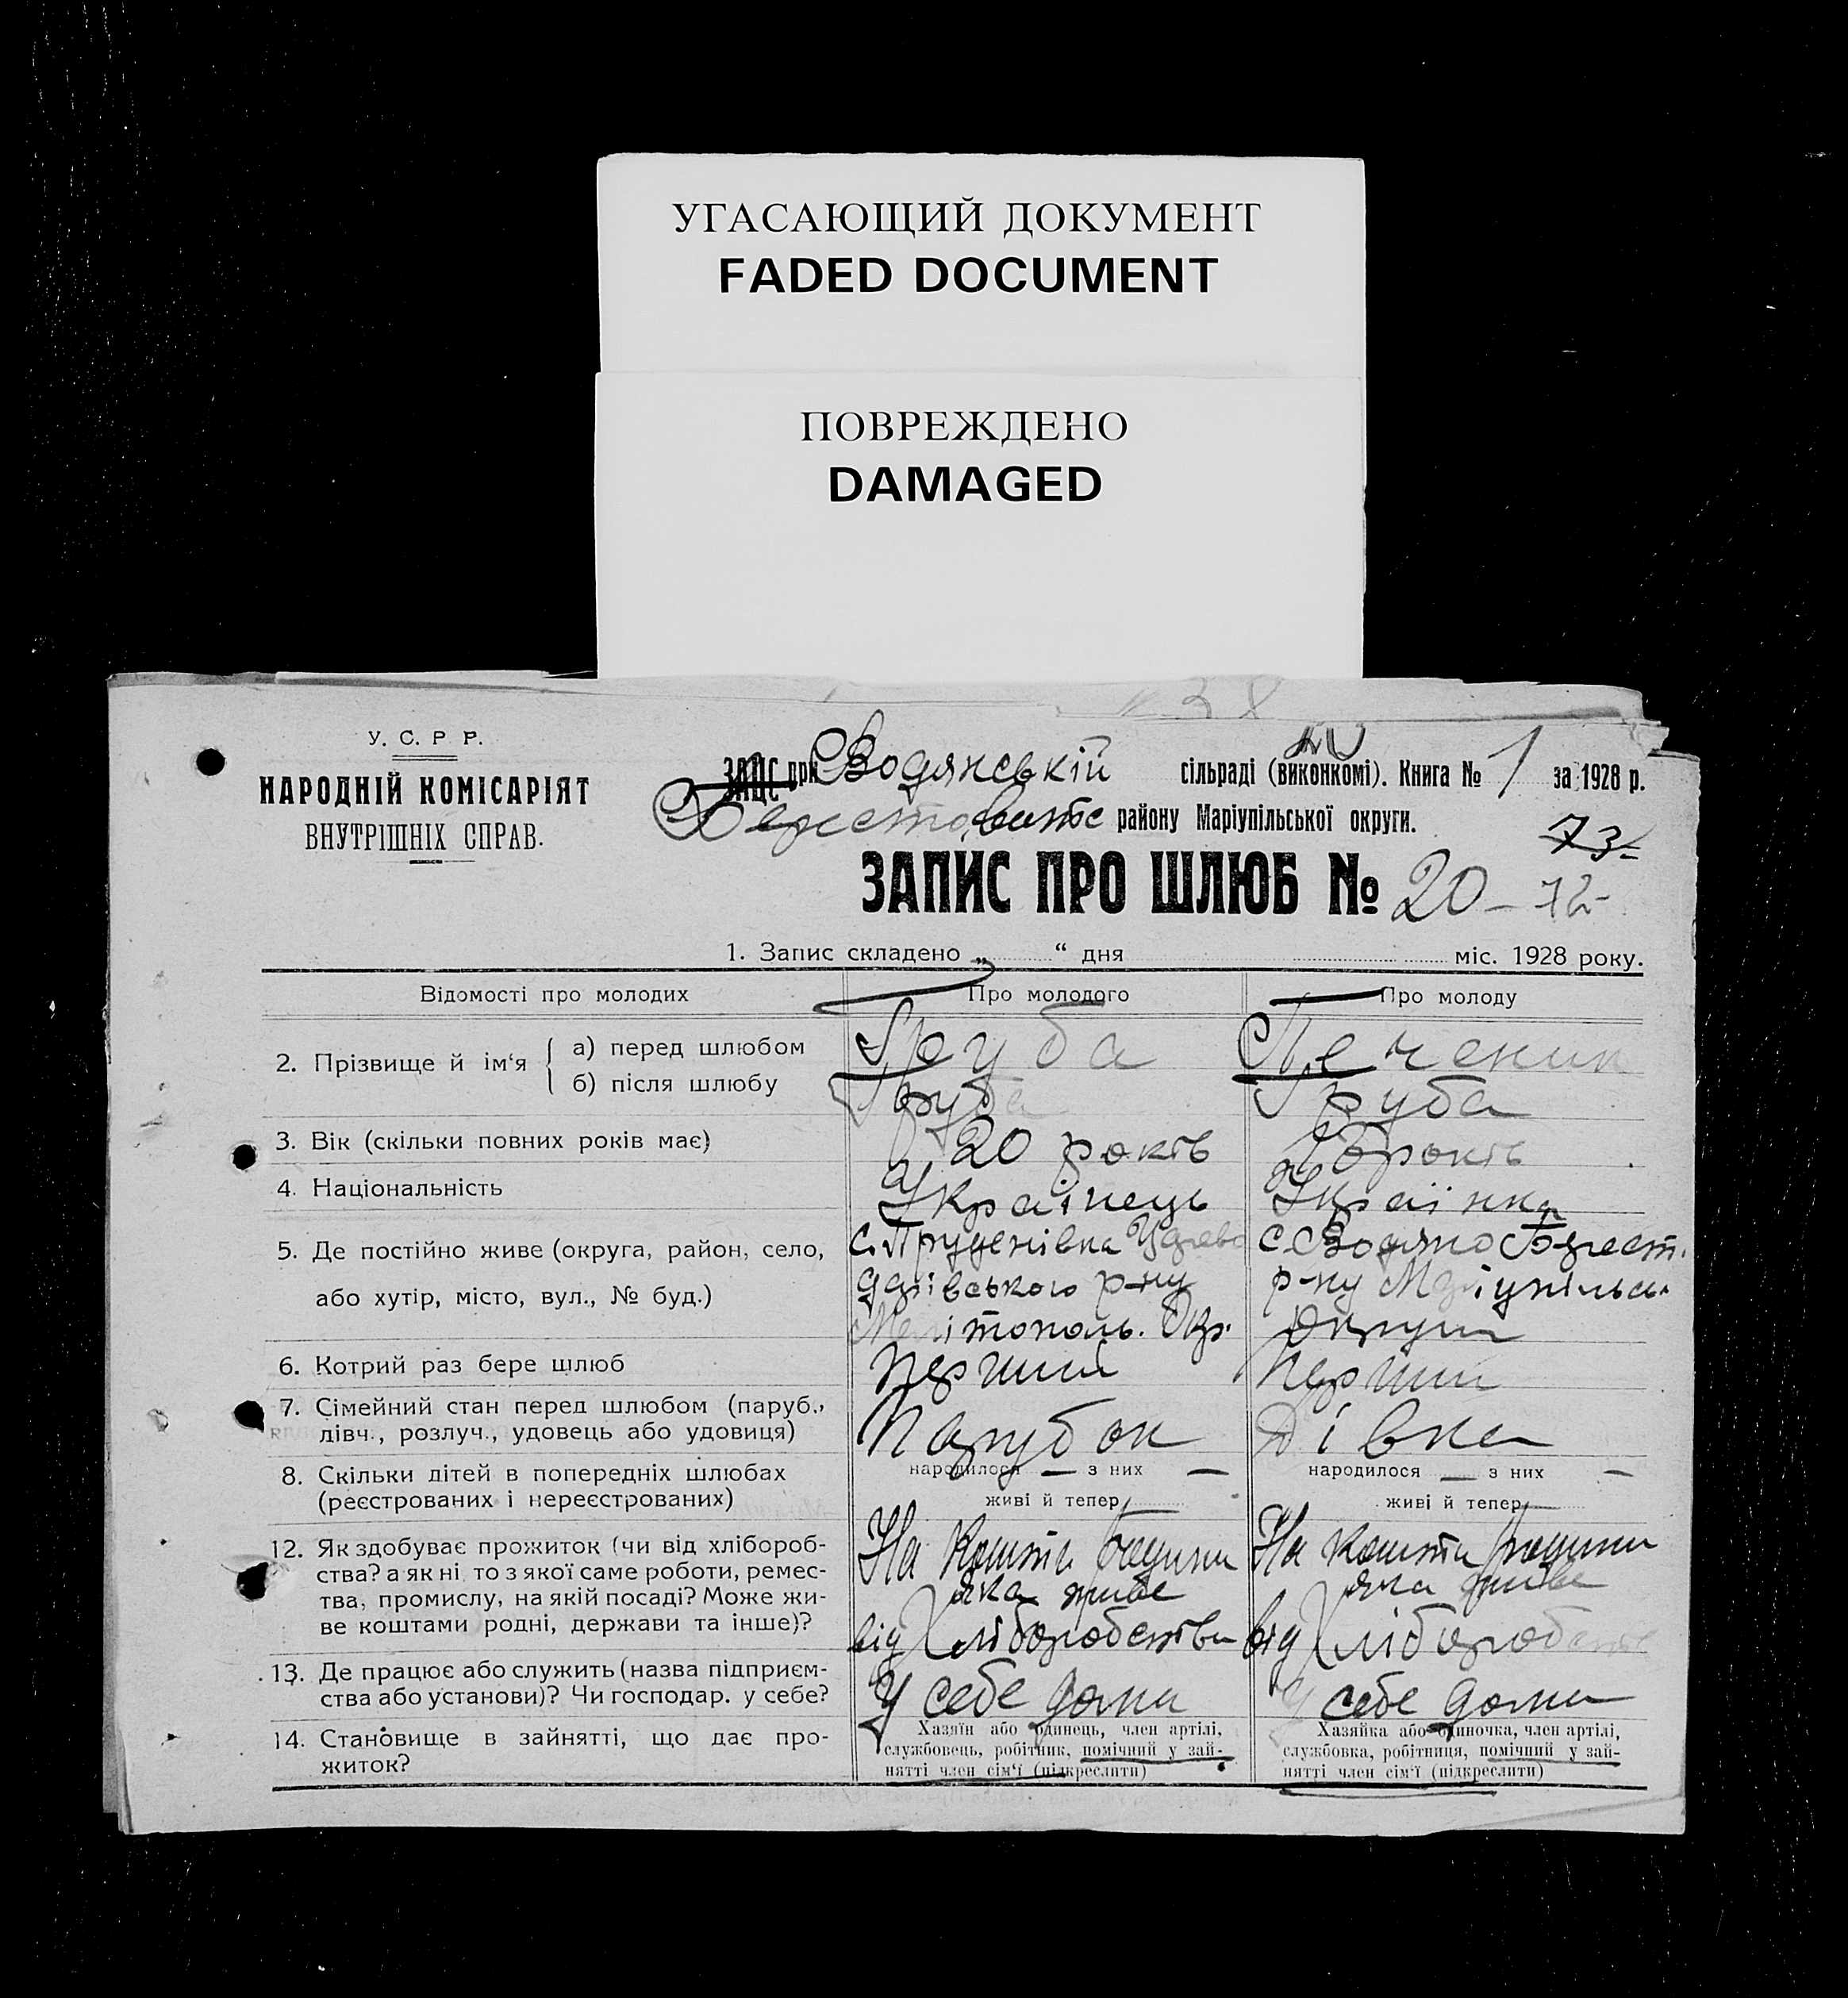 УГАСАЮЩИЙ ДОКУМЕНТ
FADED DOCUMENT
ПОВРЕЖДЕНО
DAMAGED
У. С. Р Р.
НАРОДНІЙ КОМІСАРІЯТ
ВНУТРІШНІХ СПРАВ.
ЗАПС при Водянській сільраді (виконкомі). Книга № 1 за 1928 р.
району Маріупільської округи.
73
ЗАПИС ПРО ШЛЮБ № 20 - 72-
1. Запис складено „ “ дня міс. 1928 року.
Відомості про молодих Про молодого Про молоду
2. Прізвище й ім‘я { а) перед шлюбом Груба Печеник
б) після шлюбу Груба Груба
3. Вік (скільки повних років має) 20 років років
4. Національність Українець Українка
5. Де постійно живе (округа, район, село, с. с. Водяно
або хутір, місто, вул., № буд.) р-ну р-ну Маріупільсь.
Мелітополь. Окр. Округи
6. Котрий раз бере шлюб Перший Перший
7. Сімейний стан перед шлюбом (паруб., Парубок Дівка
дівч., розлуч., удовець або удовиця)
8. Скільки дітей в попередніх шлюбах народилося — з них — народилося — з них —
(реєстрованих і нереєстрованих) живі й тепер — живі й тепер —
12. Як здобуває прожиток (чи від хлібороб- На кошти родини На кошти родини
ства? а як ні, то з якої саме роботи, ремес- яка живе яка живе
тва, промислу, на якій посаді? Може жи-
ве коштами родні, держави та інше)? від Хліборобства від Хліборобства
13. Де працює або служить (назва підприєм- У себе дома У себе дома
ства або установи)? Чи господар. у себе?
14. Становище в зайнятті, що дає про- Хазяїн або одинець, член артілі, Хазяйка або одиночка, член артілі,
житок? службовець, робітник, помічний у зай- службовка, робітниця, помічний у зай-
нятті член сім‘ї (підкреслити) нятті член сім‘ї (підкреслити)